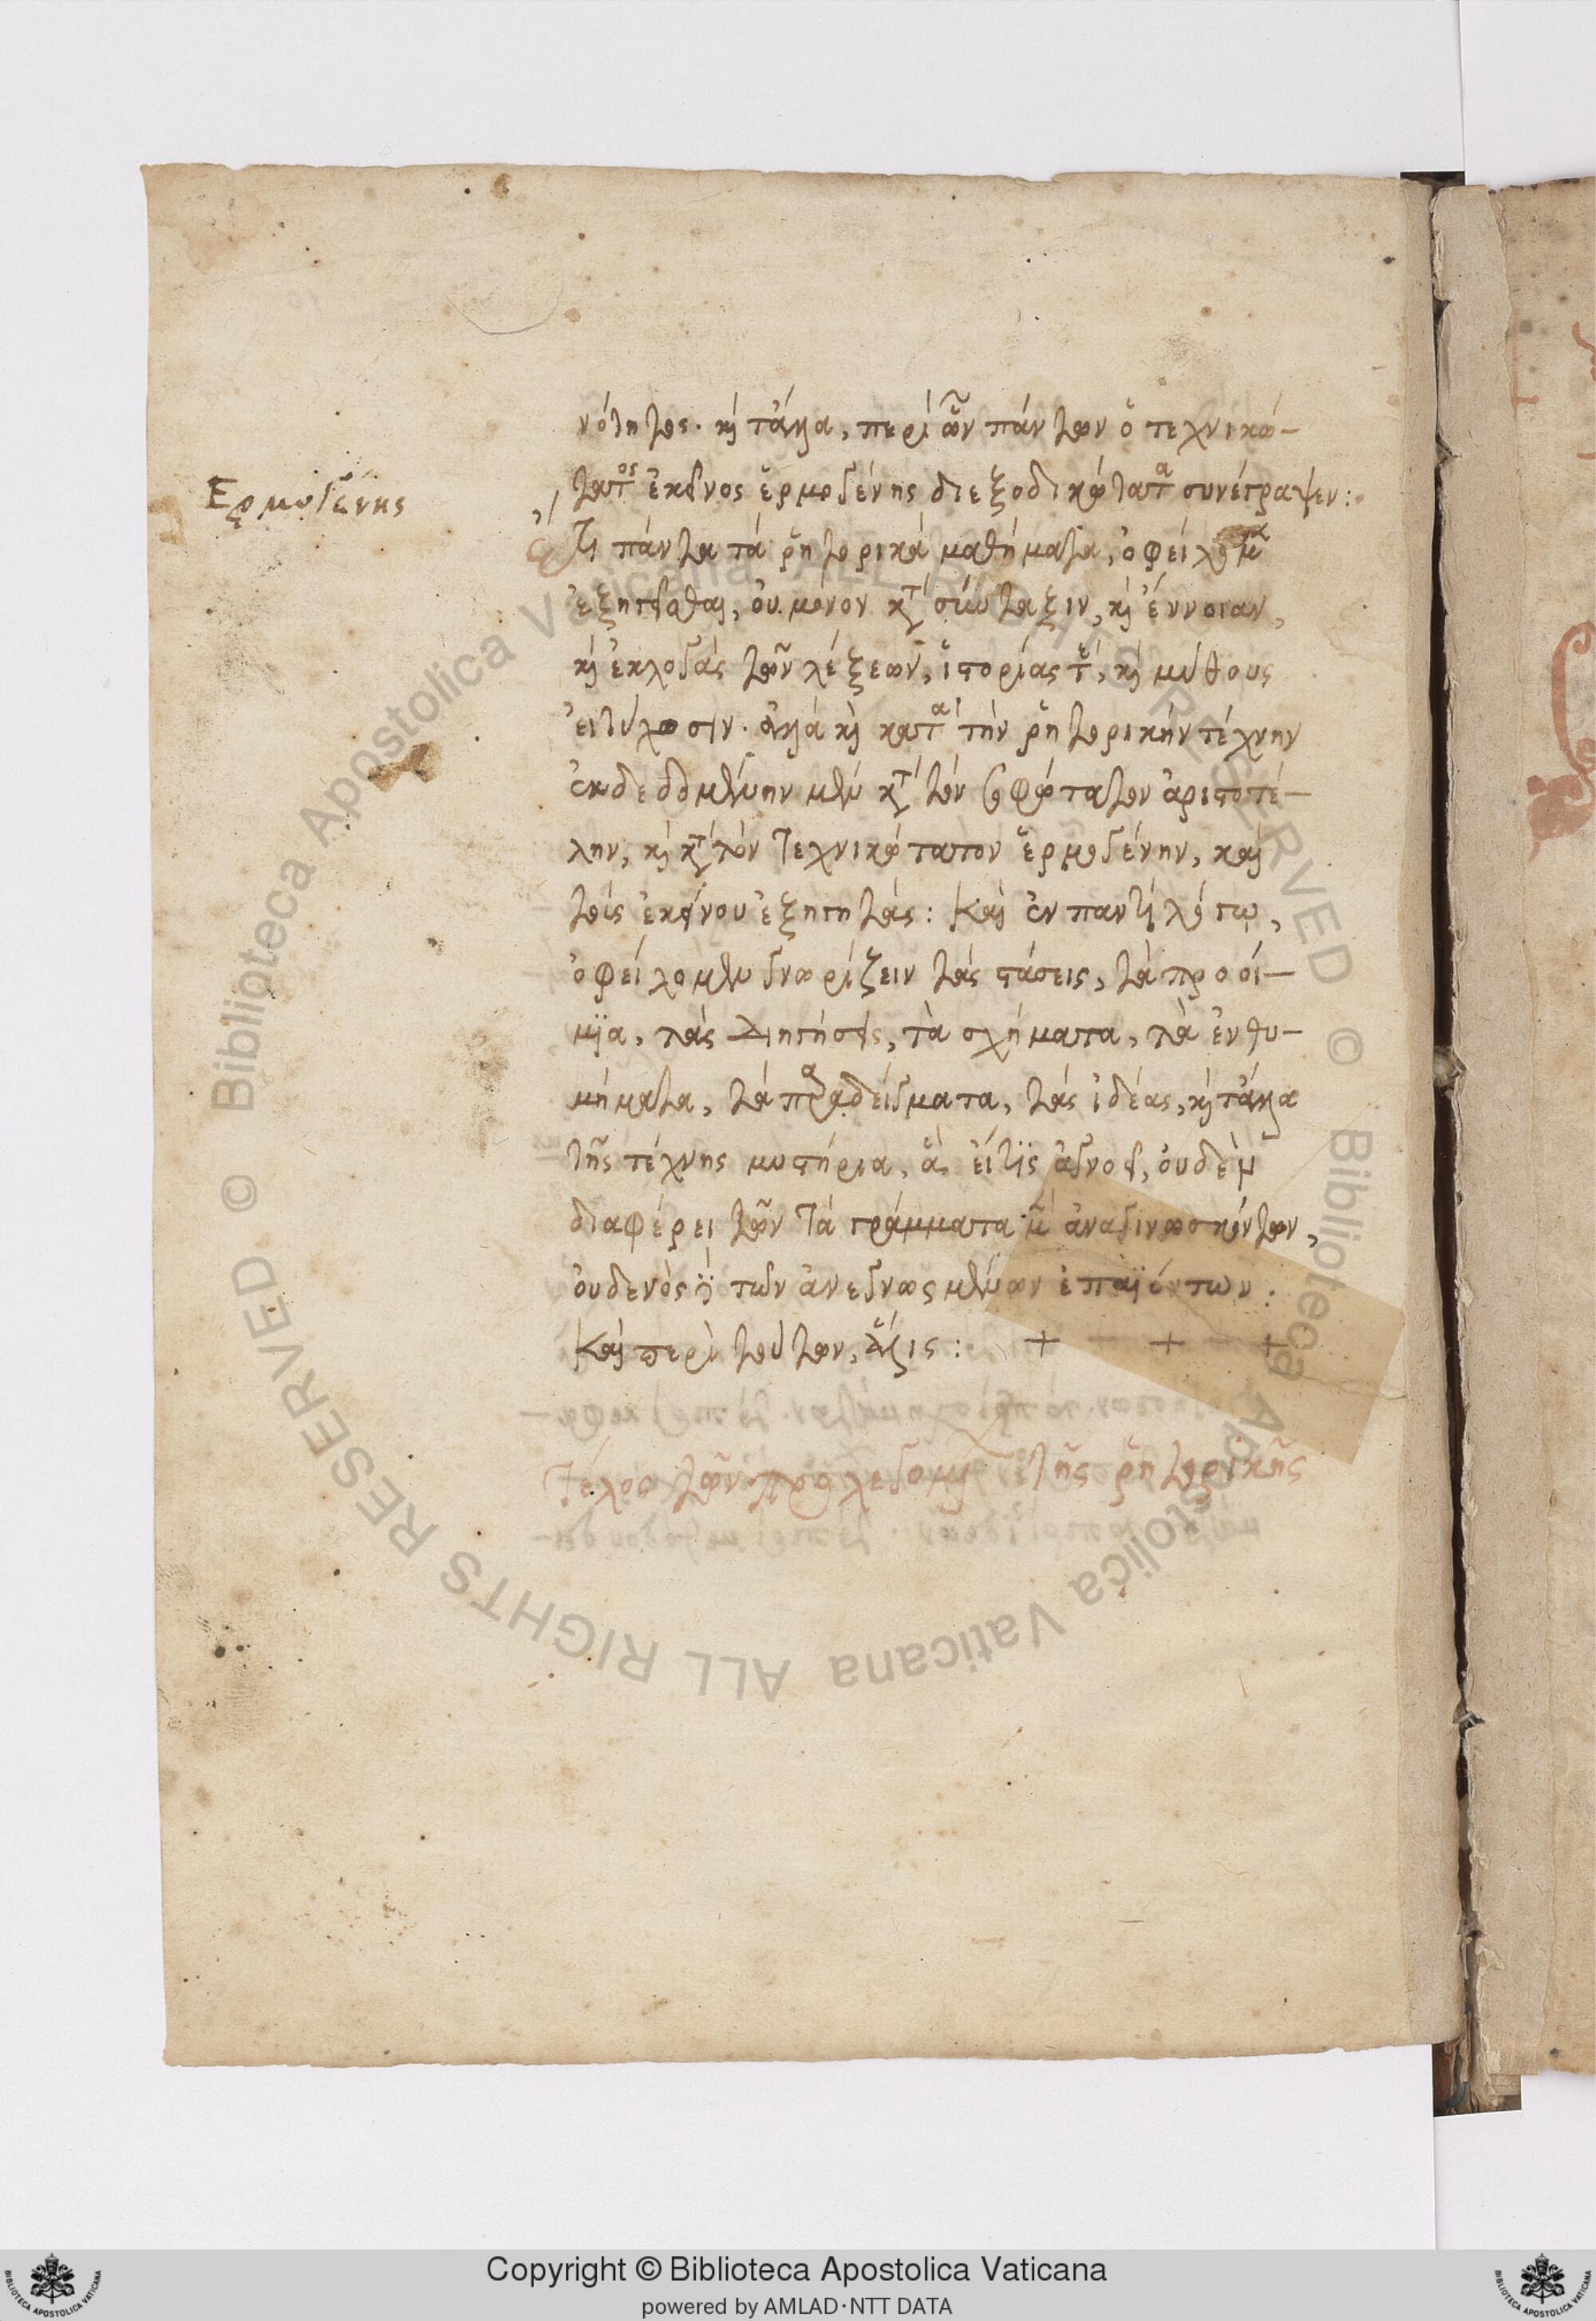 νότητος. καὶ τἄλλα, περὶ ὧν πάντων ὁ τεχνικώ-
Ερμογένης
τατος ἐκεῖνος ἑρμογένης διεξοδικώτατα συνέγραψεν:
Ἔτι πάντα τὰ ῥητορικὰ μαθήματα, ὀφείλομεν
ἐξηγεῖσθαι, οὐ μόνον κατὰ σύνταξιν, καὶ ἔννοιαν,
καὶ ἐκλογὰς τῶν λέξεων, ἱστορίας τε, καὶ μύθους
εἰ τύχοσιν. ἀλλὰ καὶ κατὰ τὴν ῥητορικὴν τέχνην
ἐκδεδομένην μὲν κατὰ τὸν σοφώτατον ἀριστοτέ-
λην, καὶ κατὰ τὸν τεχνικώτατον ἑρμογένην, καὶ
τοὺς ἐκείνου ἐξηγητάς: Καὶ ἐν παντὶ λόγῳ,
ὀφείλομεν γνωρίζειν τὰς στάσεις, τὰ προοί-
μϊα, τὰς διηγήσεις, τὰ σχήματα, τὰ ἐνθυ-
μήματα, τὰ παραδείγματα, τὰς ἰδέας, καὶ τἄλλα
τῆς τέχνης μυστήρια, ἃ εἴ τις ἀγνοεῖ, οὐδὲν
διαφέρει τῶν τὰ γράμματα μὲν ἀναγινωσκόντων,
οὐδενὸς δὲ τῶν ἀνεγνωσμένων ἐπαϊόντων:
Καὶ περὶ τούτων, ἅλις: + — + — +
Τέλος τῶν προλεγομένων τῆς ῥητορικῆς
© Biblioteca Apostolica Vaticana ALL RIGHTS RESERVED
© Biblioteca Apostolica Vaticana ALL RIGHTS RESERVED
Copyright © Biblioteca Apostolica Vaticana
powered by AMLAD·NTT DATA
BIBLIOTECA APOSTOLICA VATICANA
BIBLIOTECA APOSTOLICA VATICANA